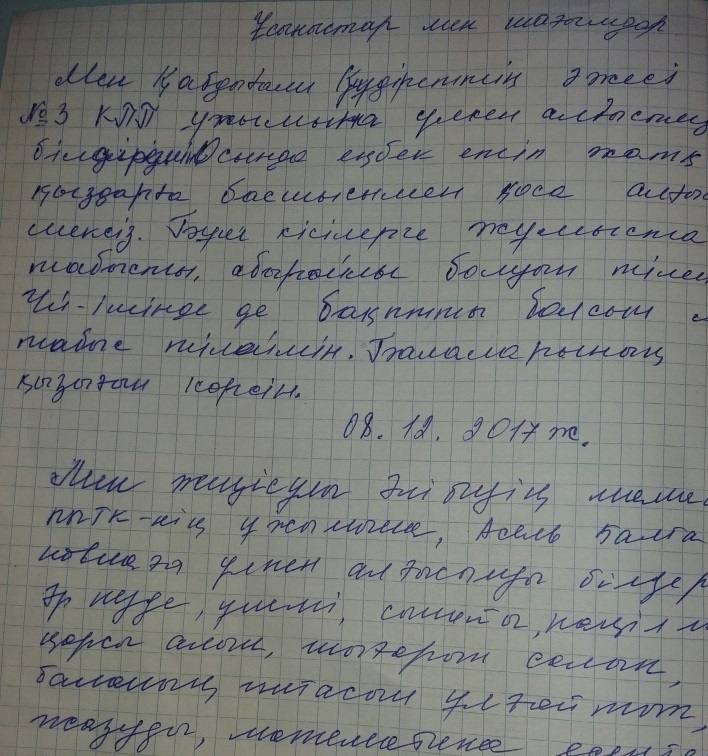 Ұсыныстар мен шағымдар
Мен Қабдығали Құдіреттің әжесі
№3 КПП ұжымына үлкен алғысымд
білдіремін Осында еңбек етіп жатқ
қыздарға басшысымен қоса алғыс
шексіз. Бұл кісілерге жұмыста
табысты, абыройлы болуын тілей
Үй-ішінде де бақытты болсын
табыс тілеймін. Балаларының
қызығын көрсін.
08. 12. 2017 ж.
Мен мама
ППТК-нің ұжымына, Асель Балта
новнаға үлкен алғысымды білдер
Әр күде, үлкі, сыпайы, көңілі
қарсы алып, шығарып салып,
баланың ұлғайтып,
жазуды, математика есепте